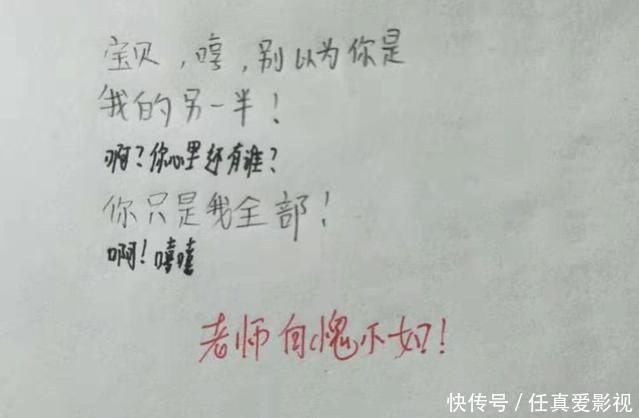 宝贝，哼，别以为你是
我的另一半！
啊？你心里还有谁？
你只是我全部！
啊！嘻嘻
老师自愧不如！
快传号／任真爱影视